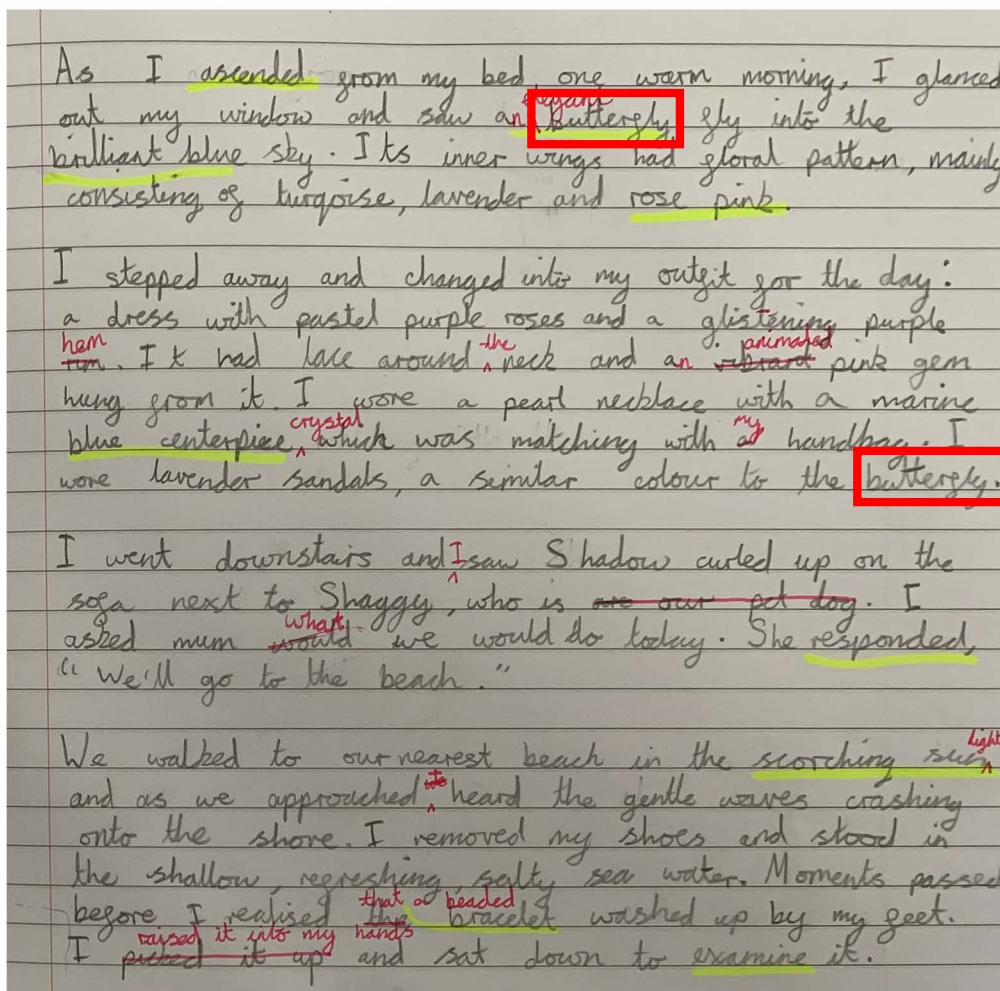 As I ascended from my bed, one warm morning, I glanced
elegant
out my window and saw an butterfly fly into the
brilliant blue sky. Its inner wings had floral pattern, mainly
consisting of turqoise, lavender and rose pink.
I stepped away and changed into my outfit for the day:
a dress with pastel purple roses and a glistening purple
hem the animated
rim. It had lace around neck and an vibrant pink gem
hung from it. I wore a pearl necklace with a marine
crystal my
blue centerpiece which was matching with a handbag. I
wore lavender sandals, a similar colour to the butterfly.
I went downstairs and I saw Shadow curled up on the
sofa next to Shaggy, who is are our pet dog. I
what
asked mum would we would do today. She responded,
"We'll go to the beach."
light
We walked to our nearest beach in the scorching sun
I
and as we approached heard the gentle waves crashing
onto the shore. I removed my shoes and stood in
the shallow, refreshing, salty sea water. Moments passed
that a beaded
before I realised the bracelet washed up by my feet.
raised it into my hands
I picked it up and sat down to examine it.